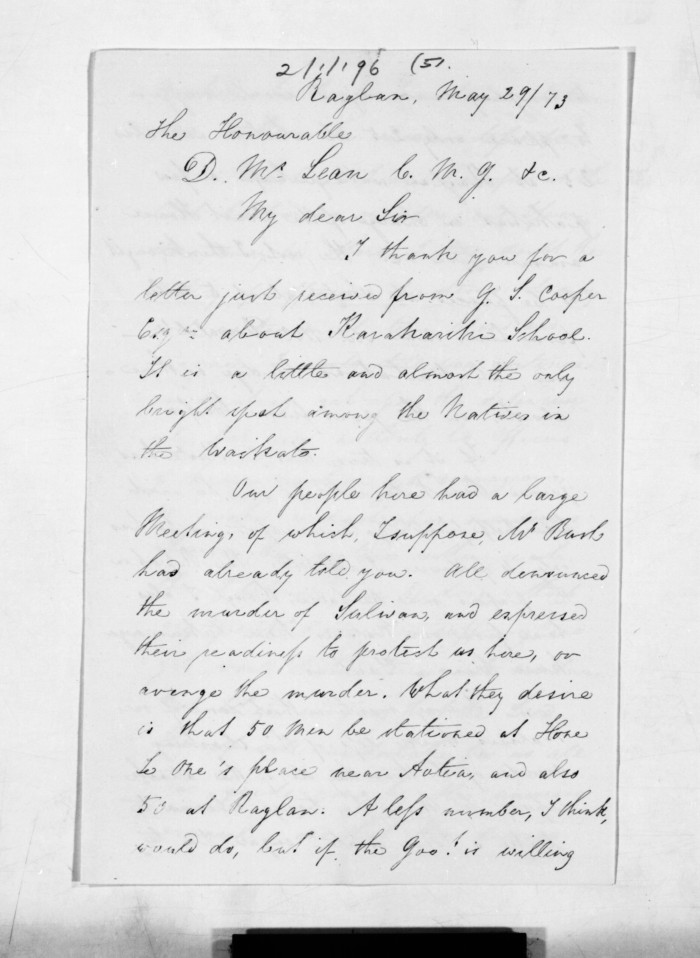 2/1/196 (51.
Raglan, May 29/73
The Honourable
D. Mc Lean C. M. G. &c.
My dear Sir
I thank you for a
letter just received from G. S. Cooper
Esqre about Karakariki School.
It is a little and almost the only
bright spot among the Natives in
the Waikato.
Our people here had a large
Meeting, of which, I suppose, Mr Bush
has already told you. All denounced
the murder of Sulivan, and expressed
their readiness to protect us here, or
avenge the murder. What they desire
is that 50 men be stationed at Hone
Te One's place near Aotea, and also
50 at Raglan. A less number, I think,
would do, but if the Gov.t is willing